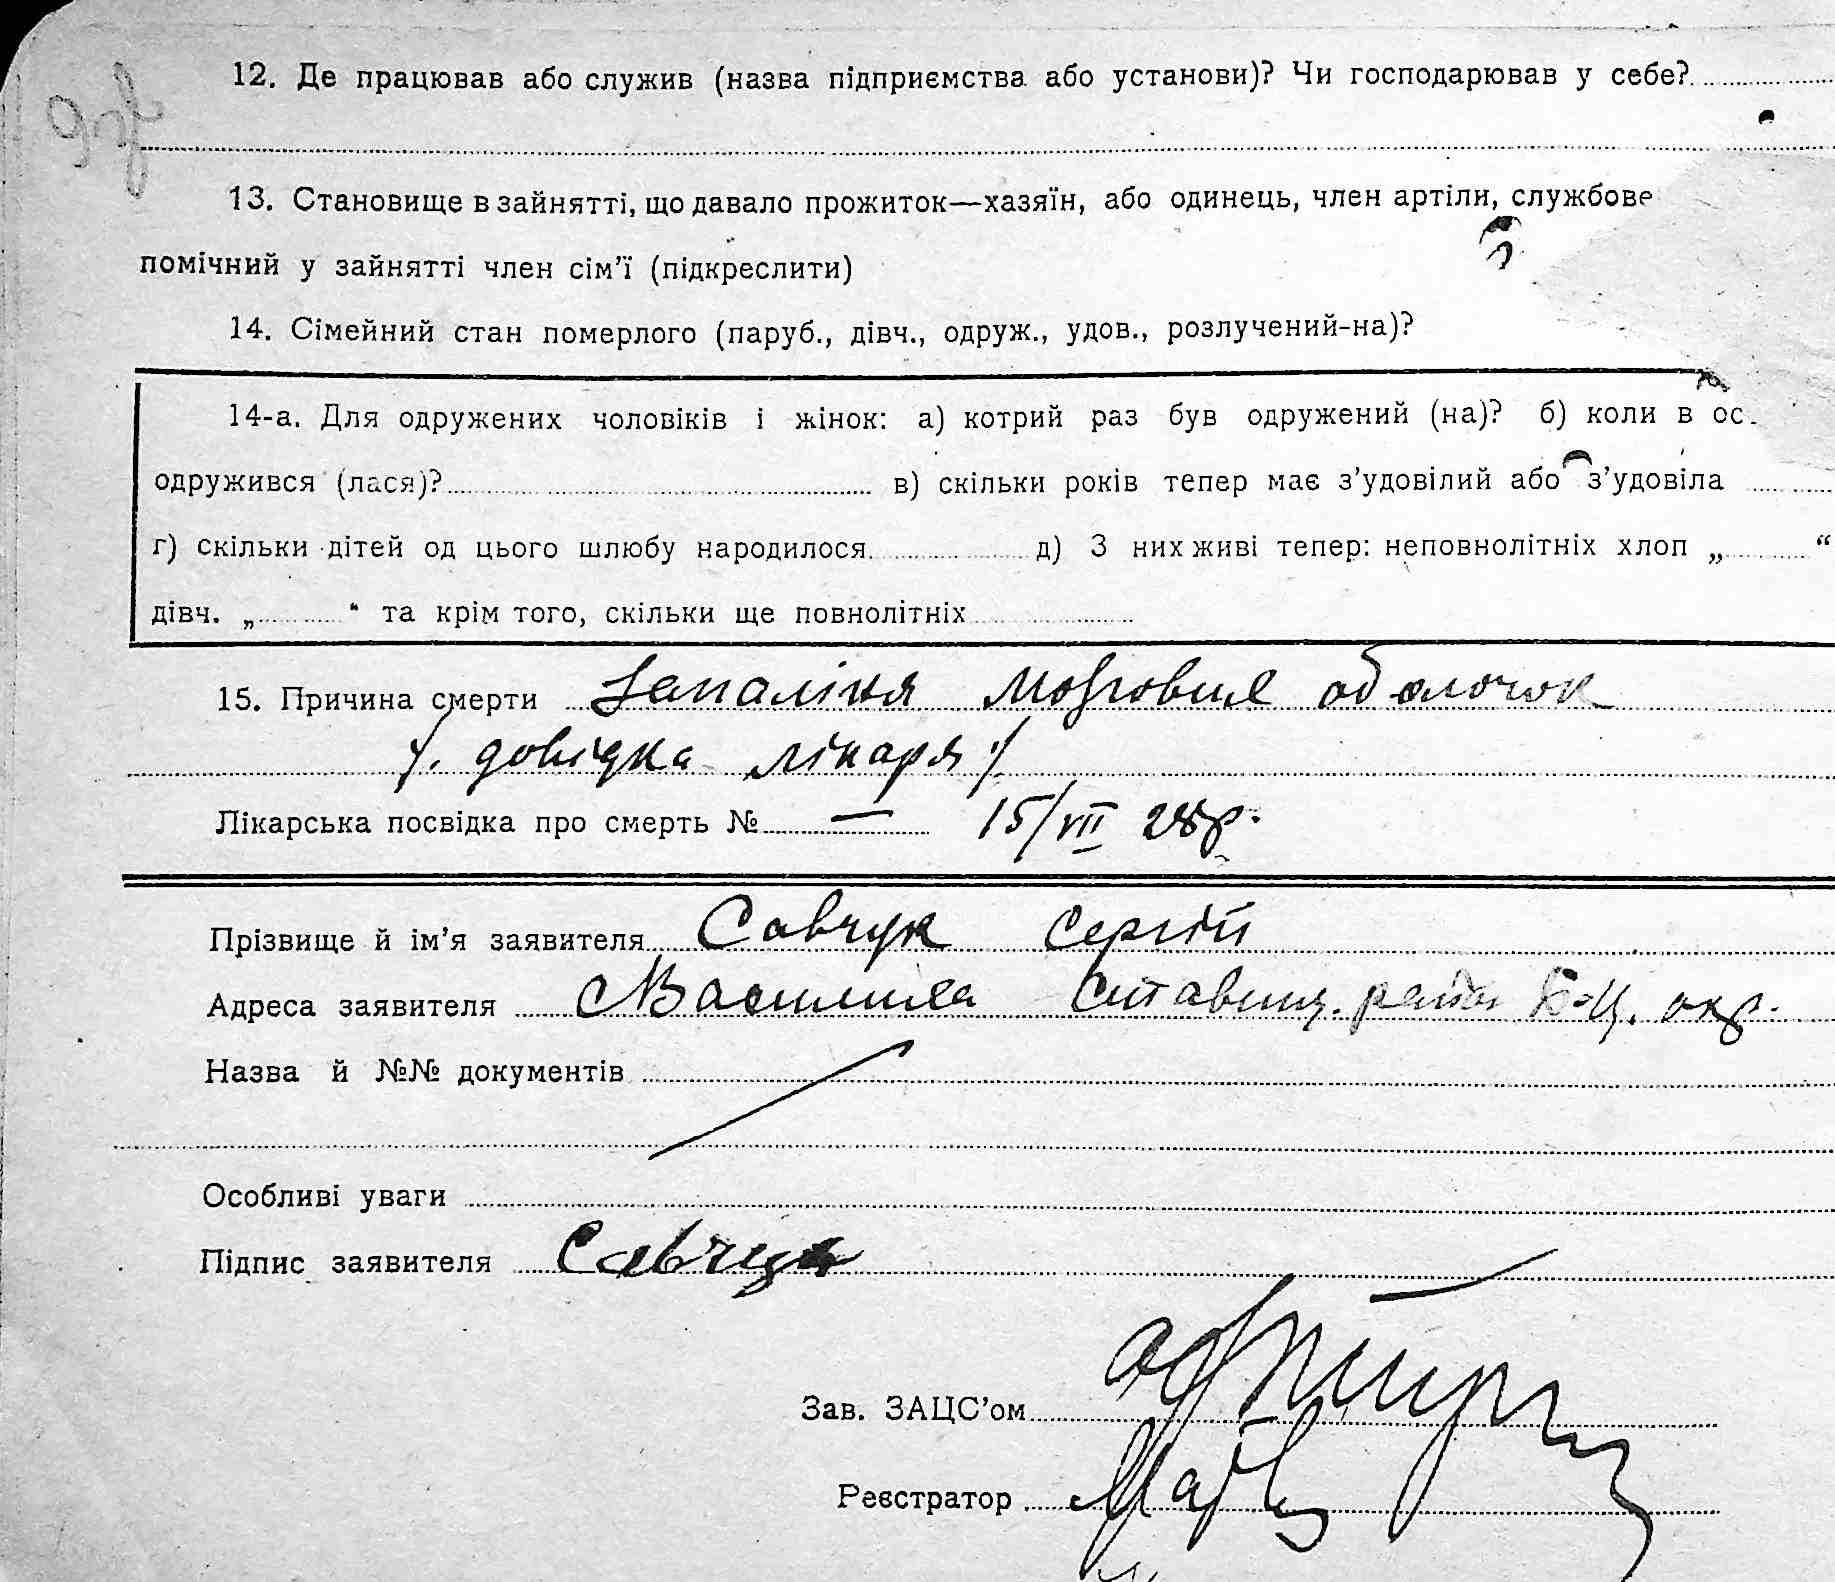 12. Де працював або служив (назва підприємства або установи)? Чи господарював у себе?
13. Становище в зайнятті, що давало прожиток—хазяїн, або одинець, член артіли, службове
помічний у зайнятті член сім'ї (підкреслити)
14. Сімейний стан померлого (паруб., дівч., одруж., удов., розлучений-на)?
14-а. Для одружених чоловіків і жінок: а) котрий раз був одружений (на)? б) коли в ос.
одружився (лася)? в) скільки років тепер має з'удовілий або з'удовіла
г) скільки дітей од цього шлюбу народилося д) З них живі тепер: неповнолітніх хлоп „ “
дівч. „ “ та крім того, скільки ще повнолітніх
15. Причина смерти Запаліня мозговых оболочок
/. довідка лікаря ./
Лікарська посвідка про смерть № — 15/VII 28р.
Прізвище й ім'я заявителя Савчук Сергій
Адреса заявителя Ставищ. району Б-Ц. окр.
Назва й №№ документів
Особливі уваги
Підпис заявителя Савчук
Зав. ЗАЦС'ом
Реєстратор